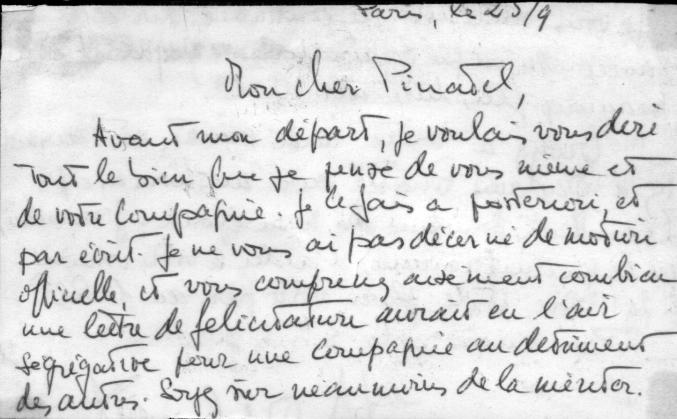 Paris, le 23/9
Mon cher Pinatel,
Avant mon départ, je voulais vous dire
tout le bien que je pense de vous même et
de votre Compagnie. Je le fais a posteriori, et
par écrit. Je ne vous ai pas décerné de motion
officielle, et vous comprenez aisement combien
une lettre de felicitation aurait eu l'air
ségrégative pour une compagnie au detriment
des autres. Soyez sûr néanmoins de la mériter.